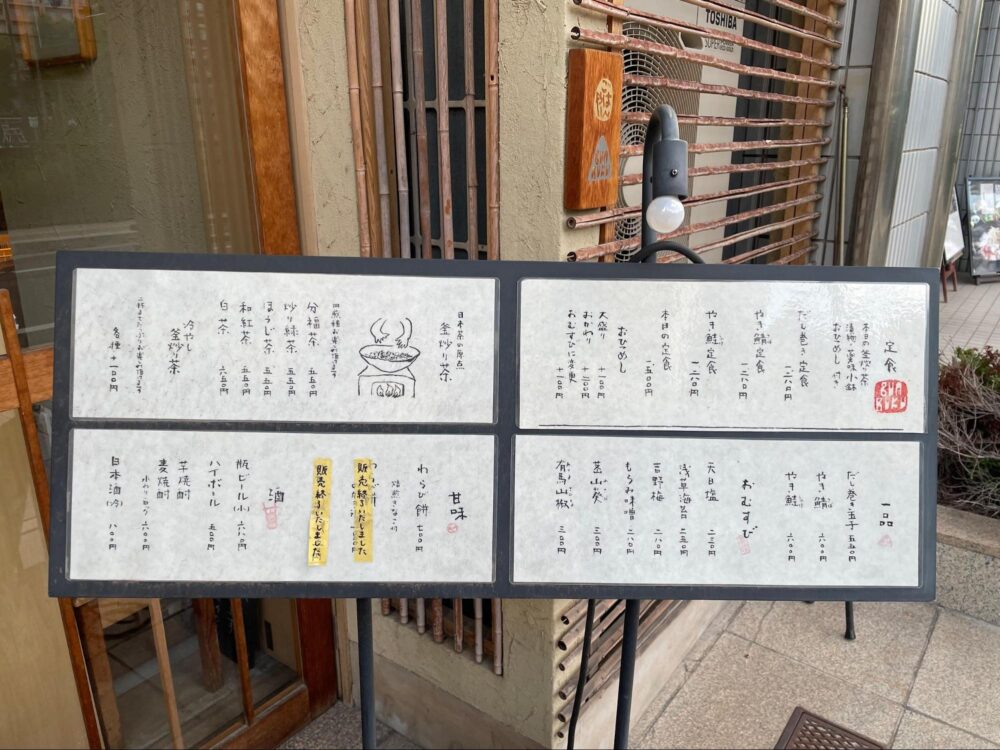 TOSHIBA
ごはん
や
定食
BUN
BUKU
本日の釜炒り茶
漬物・薬味小鉢
おひつめし 付き
だし巻き定食
一、二八〇円
やき鯖定食
一、二八〇円
やき鮭定食
一、二八〇円
本日の定食
一、五〇〇円
おひつめし
大盛り +一〇〇円
おかわり
おむすびに変更 +一〇〇円
日本茶の原点
釜炒り茶
分福茶 五五〇円
炒り緑茶 五五〇円
ほうじ茶 五五〇円
和紅茶 五五〇円
白茶 六五〇円
冷やし
釜炒り茶
各種+一〇〇円
一品
だし巻き玉子 五五〇円
やき鯖 六〇〇円
やき鮭 六〇〇円
おむすび
天日塩 二三〇円
浅草海苔 二五〇円
吉野梅 二八〇円
もろみ味噌 二八〇円
茎山葵 三〇〇円
有馬山椒 三〇〇円
甘味
わらび餅 七〇〇円
焙煎きなこ付
販売終了いたしました
販売終了いたしました
酒
瓶ビール(小) 六八〇円
ハイボール 五〇〇円
芋焼酎
麦焼酎
水わり ロック 六〇〇円
日本酒(冷) 八〇〇円